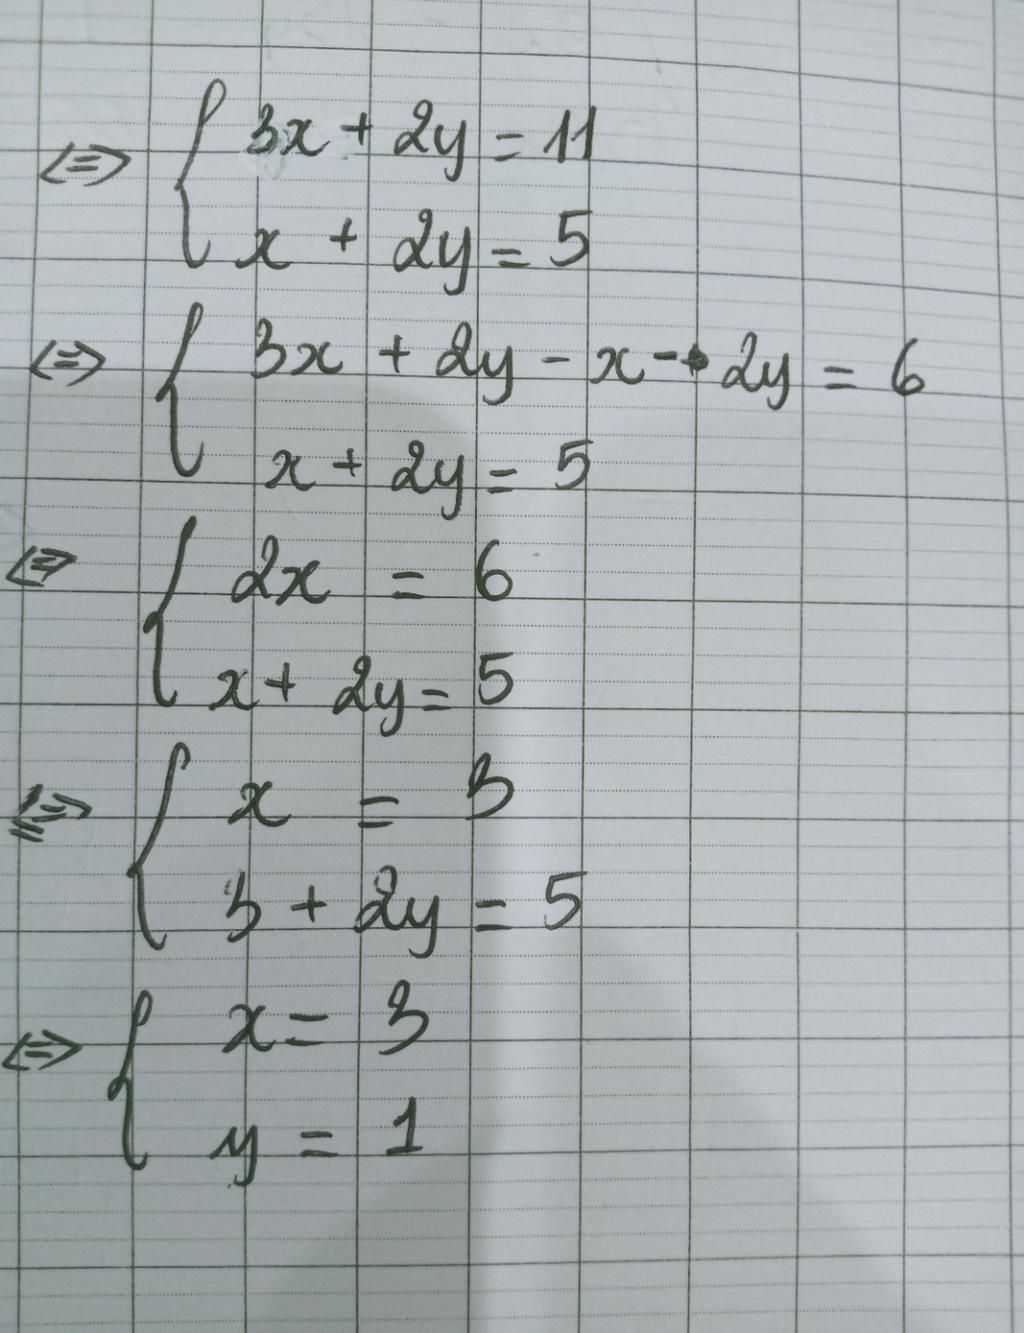 <=> { 3x + 2y = 11
x + 2y = 5
<=> { 3x + 2y - x - 2y = 6
x + 2y = 5
<=> { 2x = 6
x + 2y = 5
<=> { x = 3
3 + 2y = 5
<=> { x = 3
y = 1